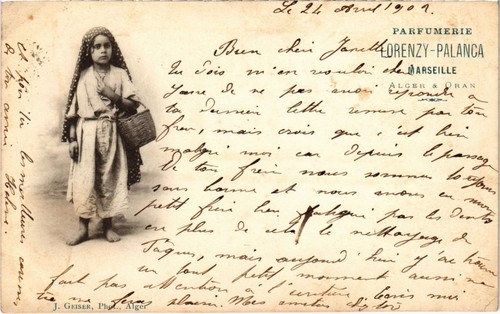 Le 24 Avril 1902.
PARFUMERIE
LORENZY-PALANCA
MARSEILLE
ALGER & ORAN
Bien cher
Tu dois m'en vouloir cher
de ne pas avoir répondu à
ta dernière lettre remise par ton
frère, mais crois que c'est bien
malgré moi car depuis le passage
de ton frère nous sommes toujours
sans bonne et nous avons eu mon
petit frère bien fatigué par les dents
en plus de cela le nettoyage de
Pâques, mais aujourd'hui j'ai
un tout petit moment aussi ne
fait pas attention à l'écriture, écris moi
tu me feras plaisir. Mes amitiés
J. GEISER, Phot., Alger
et toi les meilleures
de ton amie